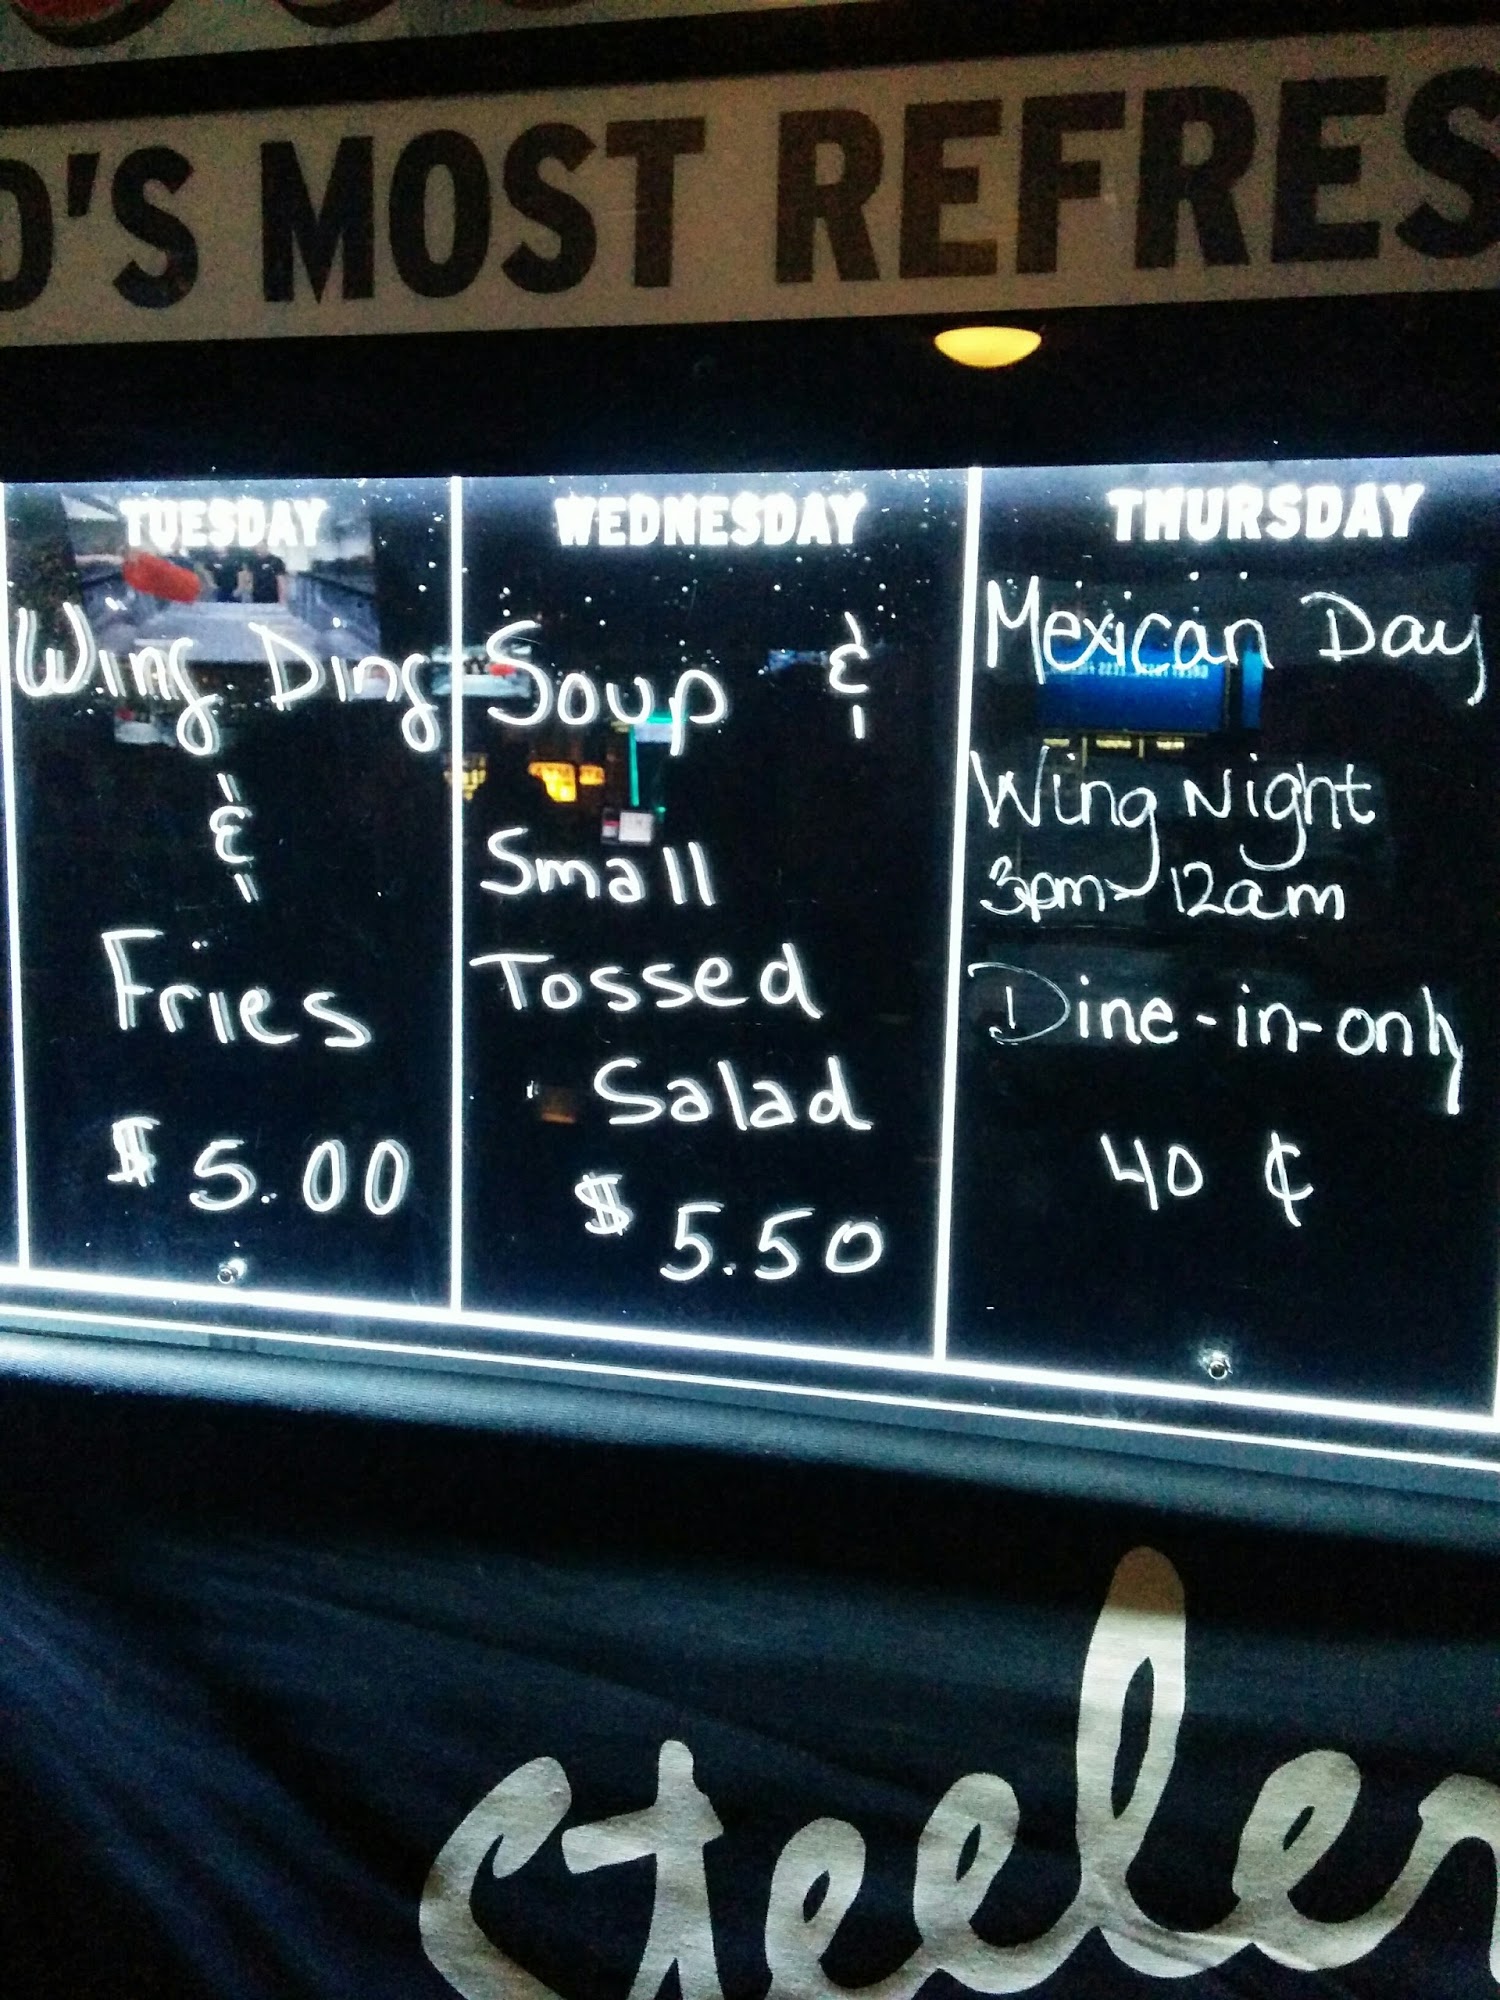 D'S MOST REFRES
TUESDAY
Wing Ding
&
Fries
$5.00
WEDNESDAY
Soup &
Small
Tossed
Salad
$5.50
THURSDAY
Mexican Day
Wing Night
3pm-12am
Dine-in-only
40¢
Steeler